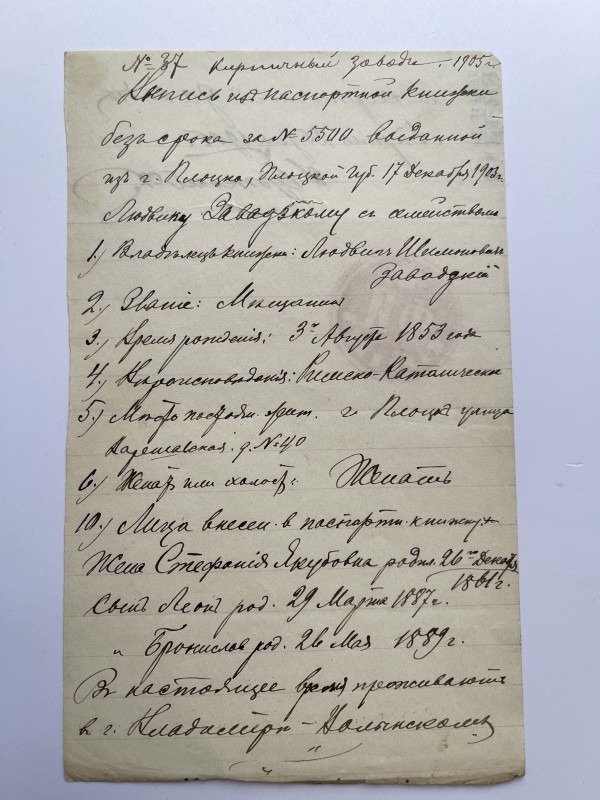 № 37 Кирпичный заводъ. 1905 г.
Выпись изъ паспортной книжки
безъ срока за № 5500 выданной
изъ г. Плоцка, Плоцкой Губ. 17 Декабря 1903 г.
Людвику Завадзкому съ семействомъ
1.) Владѣлецъ книжки: Людвигъ Шимоновичъ
Завадзкій
2.) Званіе: Мѣщанинъ
3.) Время рожденія: 3го Августа 1853 года
4.) Вѣроисповѣданія: Римско-Католическа
5.) Мѣсто постоян. жит. г. Плоцкъ улица
Варшавская. д. № 40
6.) Женатъ или холостъ: Женатъ
10.) Лица внесен. в паспортн. книжку
Жена Стефанія Якубовна родил. 26го Декабря
1861 г.
Сынъ Леонъ род. 29 Марта 1887 г.
" Брониславъ род. 26 Мая 1889 г.
Въ настоящее время проживаютъ
в г. Владимірѣ-Волынскомъ